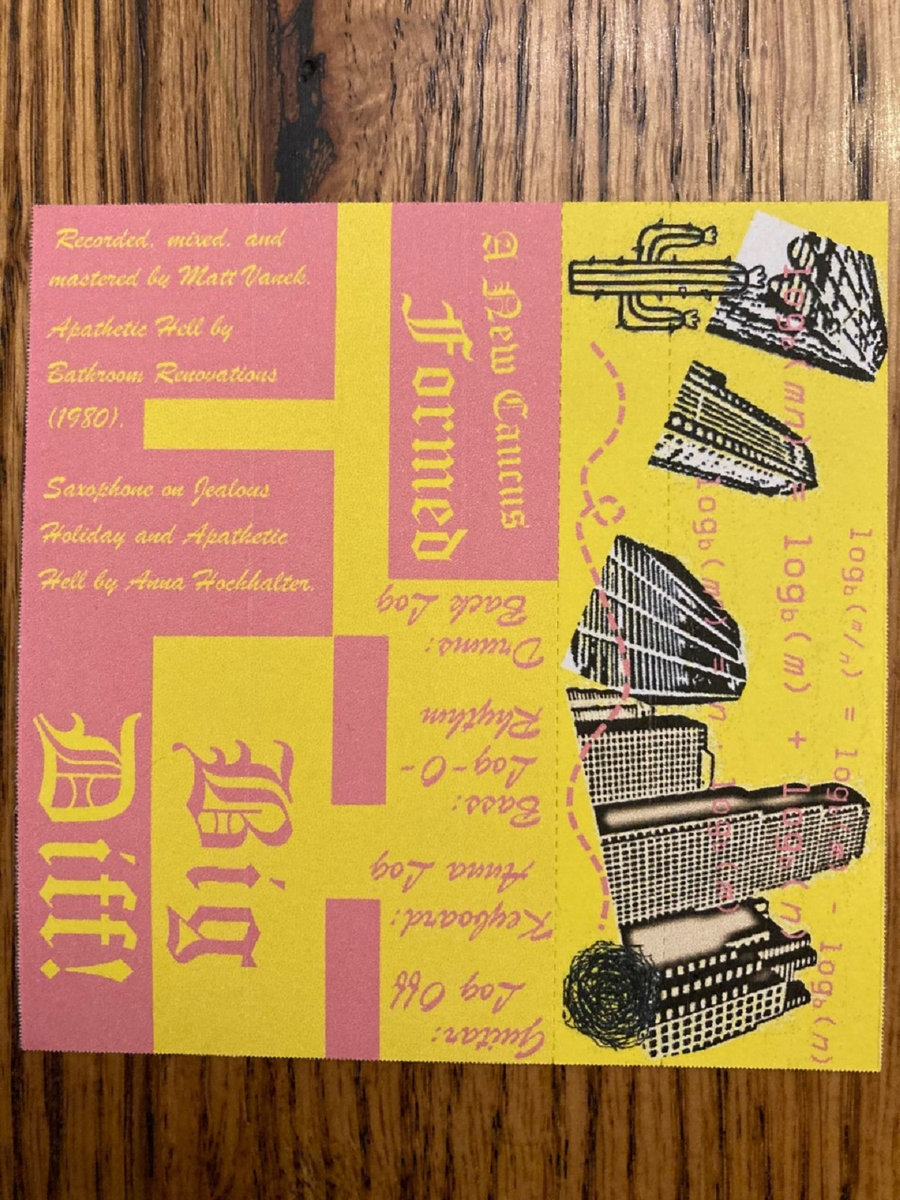 Recorded, mixed, and
mastered by Matt Vanek.
Apathetic Hell by
Bathroom Renovations
(1980).
Saxophone on Jealous
Holiday and Apathetic
Hell by Anna Hochhalter.
A New Caucus
Formed
Big
Diff!
Guitar:
Log Off
Keyboard:
Anna Log
Bass:
Log-O-
Rhythm
Drums:
Back Log
log_b(m/n) = log_b(m) - log_b(n)
log_b(mn) = log_b(m) + log_b(n)
log_b(mⁿ) = n log_b(m)